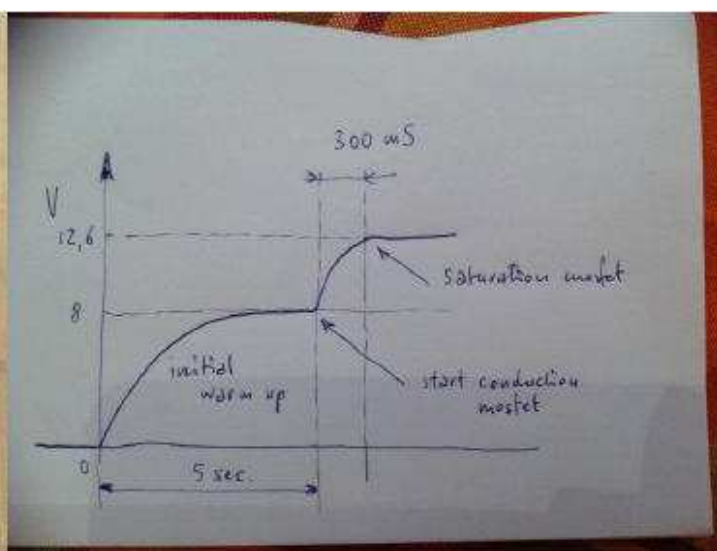 300 mS
V
12,6
saturation mosfet
8
initial
warm up
start conduction
mosfet
0
5 sec.